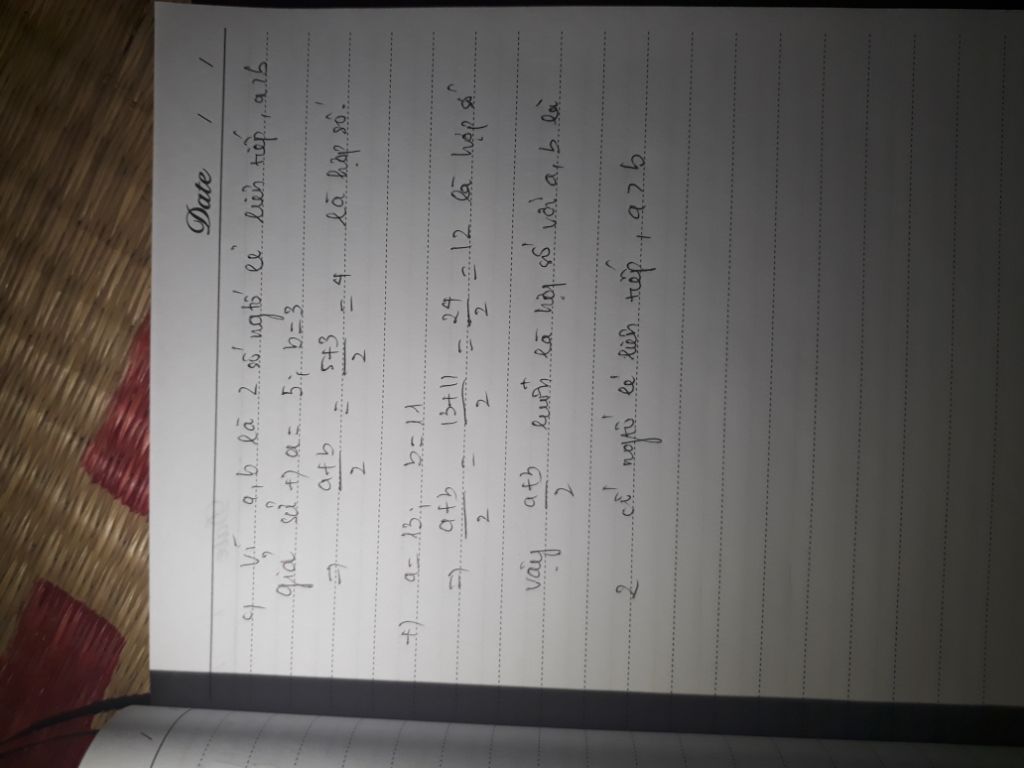 Date / /
c, Vì a, b là 2 số ngtố lẻ liên tiếp, a>b
giả sử +) a = 5; b=3
=> a+b/2 = 5+3/2 = 4 là hợp số.
+) a= 13; b=11
=> a+b/2 = 13+11/2 = 24/2 = 12 là hợp số
vậy a+b/2 luôn là hợp số với a, b là
2 số ngtố lẻ liên tiếp, a>b